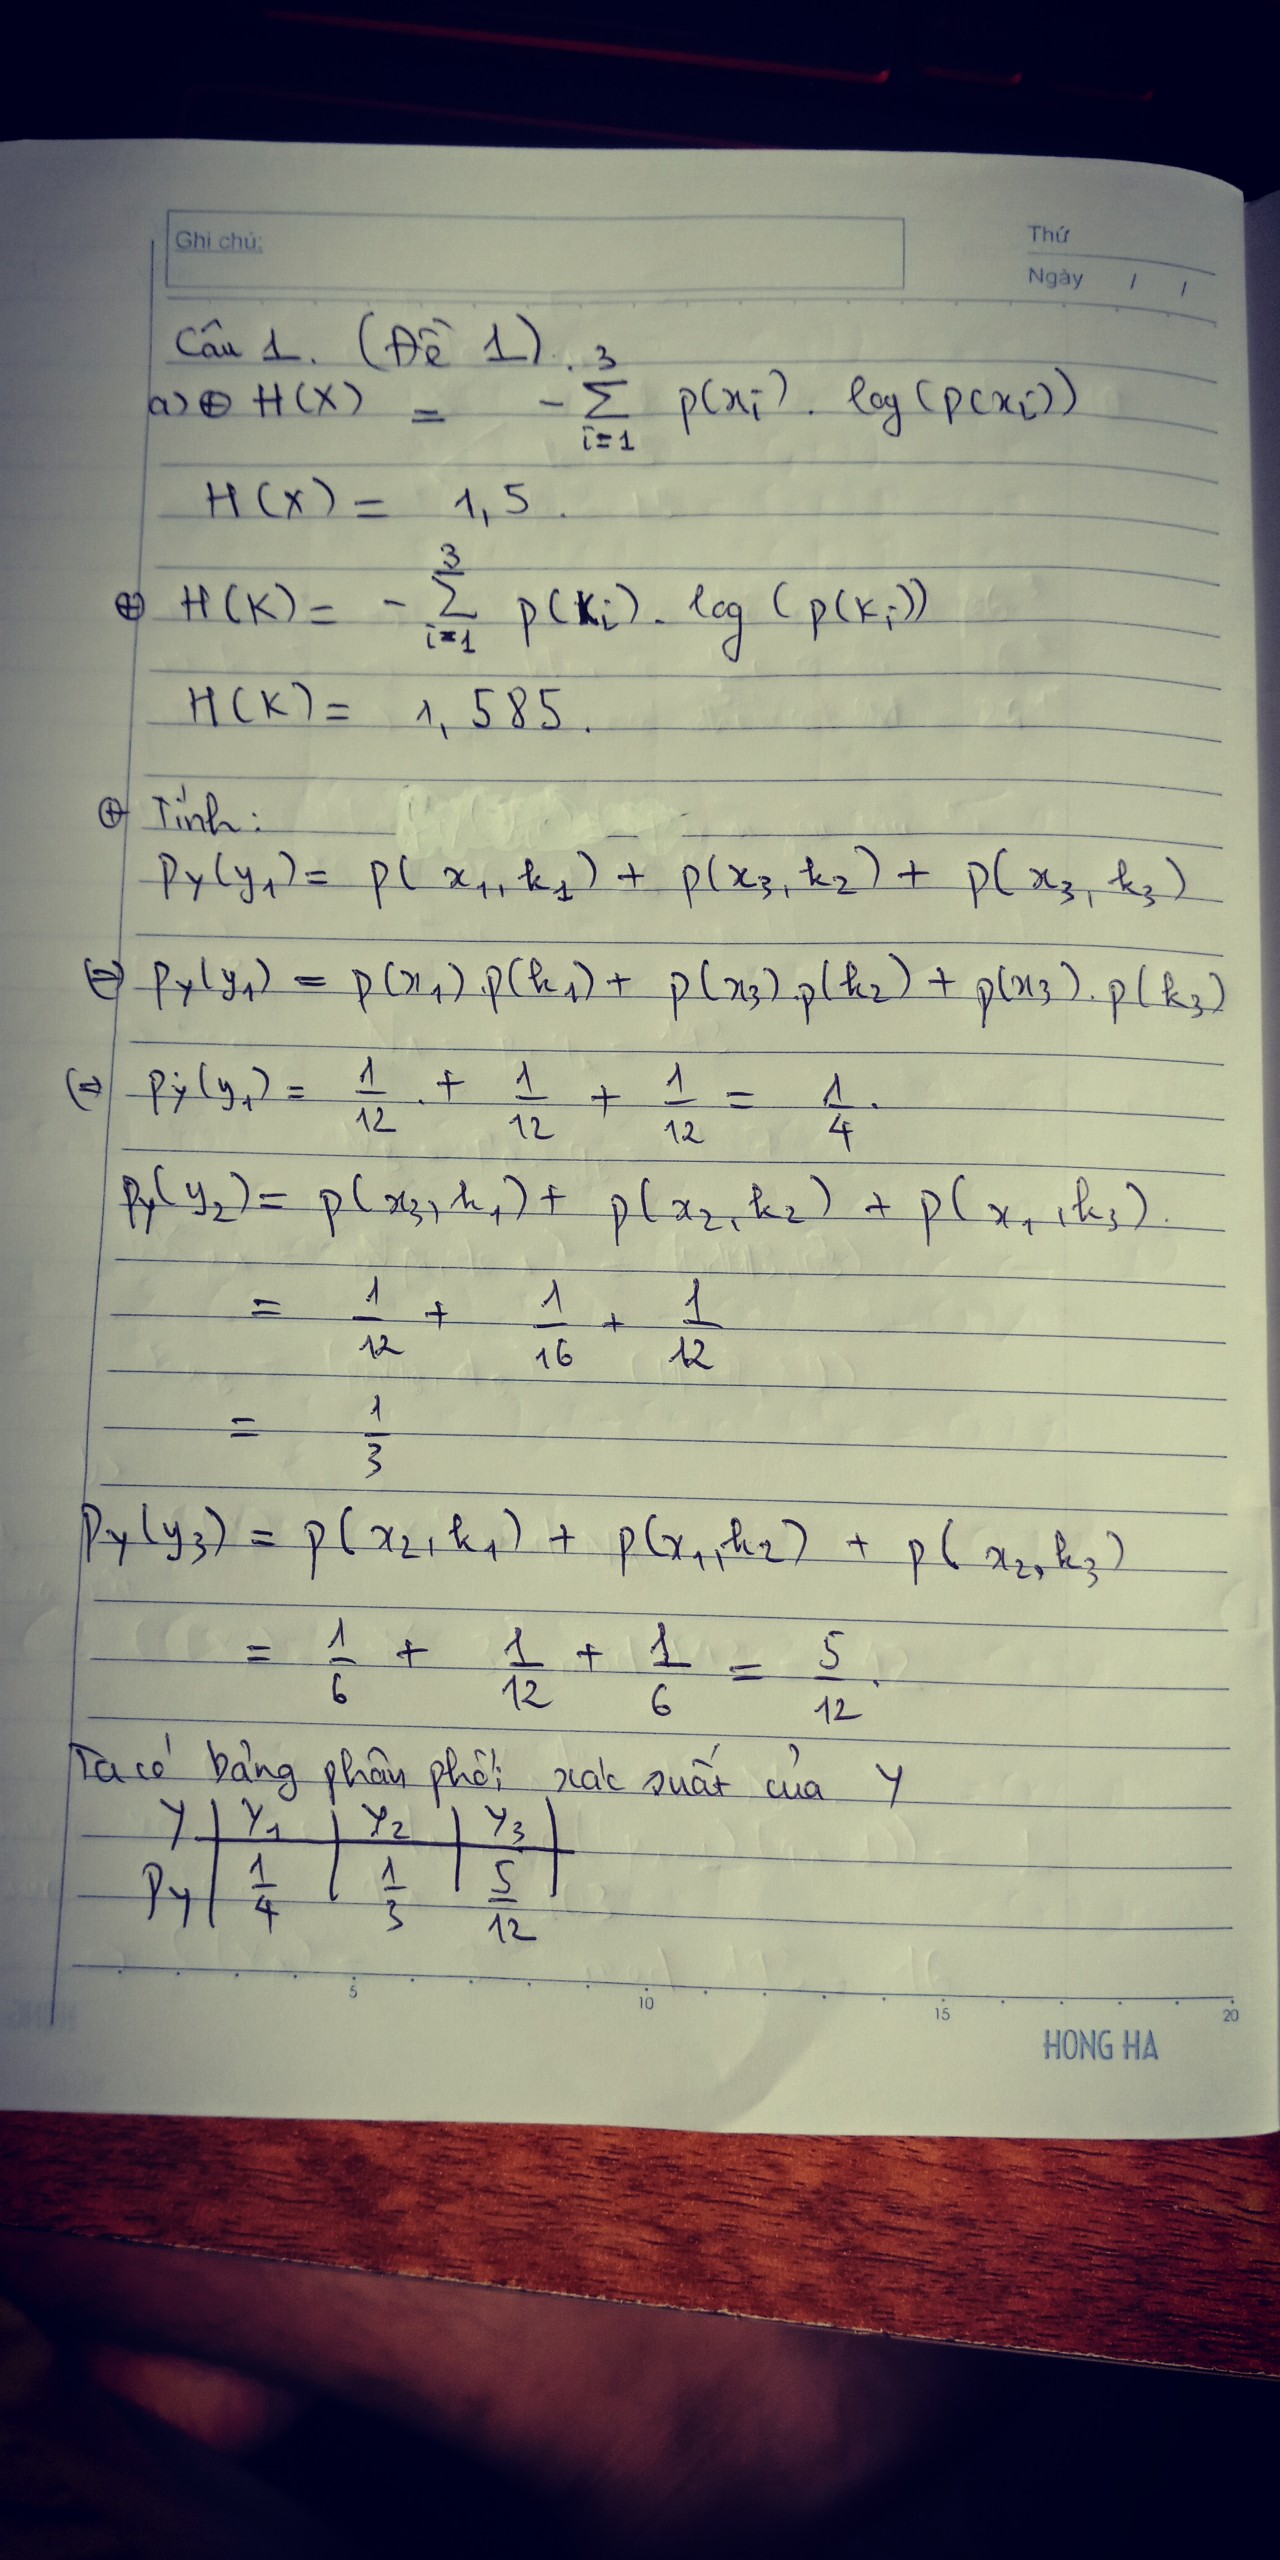 Ghi chú:
Thứ
Ngày / /
Câu 1. (Đề 1).
a) ⊕ H(X) = - ∑_{i=1}^{3} p(x_i). log(p(x_i))
H(X) = 1,5.
⊕ H(K) = - ∑_{i=1}^{3} p(K_i). log(p(K_i))
H(K) = 1,585.
⊕ Tính:
P_Y(y_1) = p(x_1, k_1) + p(x_3, k_2) + p(x_3, k_3)
(=) P_Y(y_1) = p(x_1).p(k_1) + p(x_3).p(k_2) + p(x_3).p(k_3)
(=) P_Y(y_1) = 1/12 + 1/12 + 1/12 = 1/4.
P_Y(y_2) = p(x_3, k_1) + p(x_2, k_2) + p(x_1, k_3).
= 1/12 + 1/16 + 1/12
= 1/3
P_Y(y_3) = p(x_2, k_1) + p(x_1, k_2) + p(x_2, k_3)
= 1/6 + 1/12 + 1/6 = 5/12.
Ta có bảng phân phối xác suất của Y
Y | Y_1 | Y_2 | Y_3 |
P_Y | 1/4 | 1/3 | 5/12
5 10 15 20
HONG HA